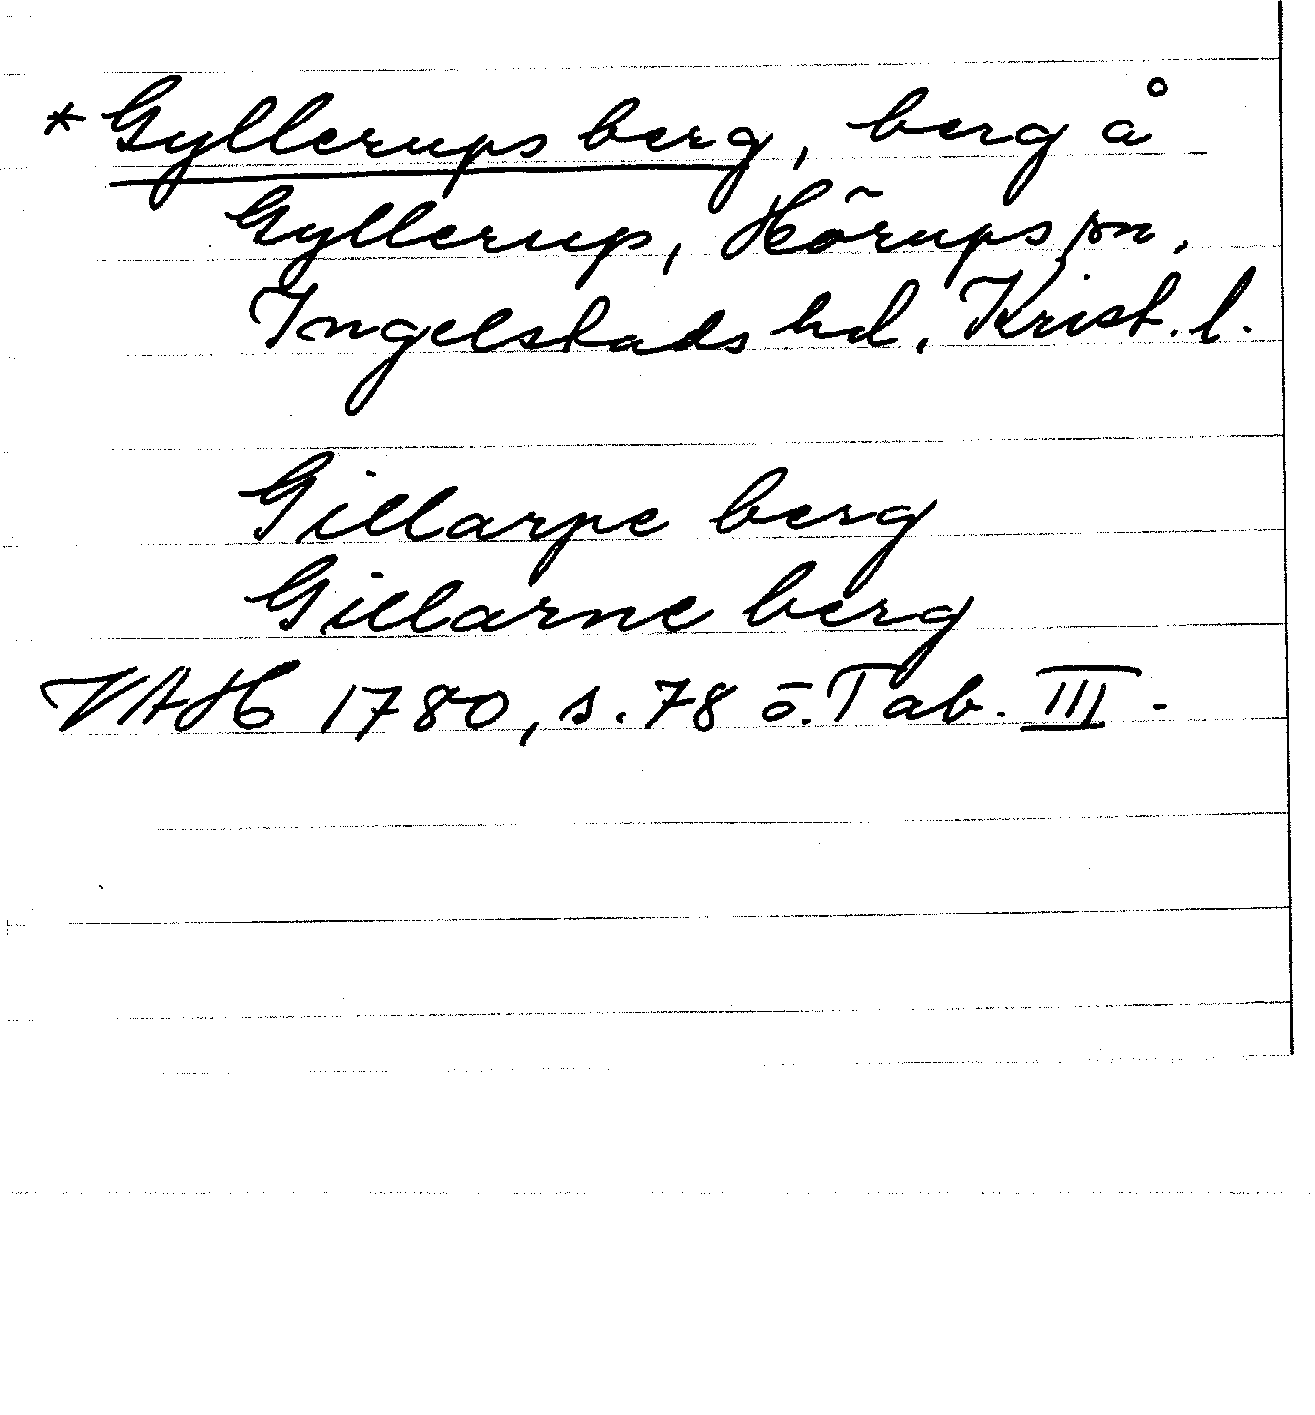 *Gyllerups berg, berg å
Gyllerup, Hörups sn,
Ingelstads hd, Krist. l.
Gillarpe berg
Gillarne berg
VAH 1780, s. 78 o. Tab. III.